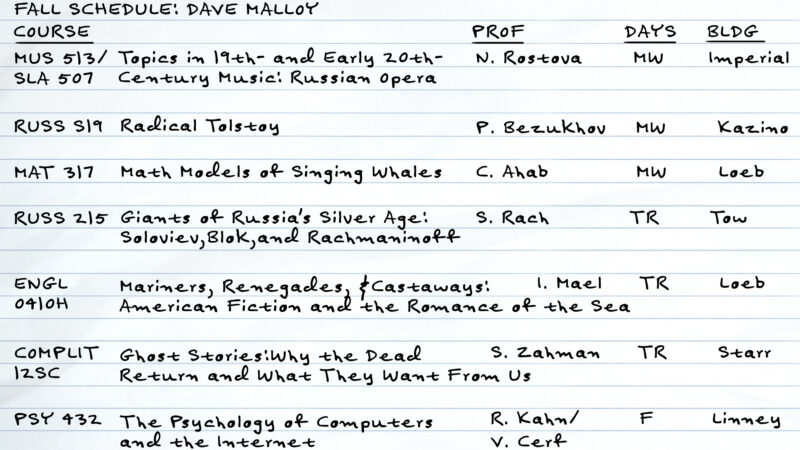 FALL SCHEDULE: DAVE MALLOY
COURSE PROF DAYS BLDG
MUS 513/ Topics in 19th- and Early 20th- N. Rostova MW Imperial
SLA 507 Century Music: Russian Opera
RUSS S19 Radical Tolstoy P. Bezukhov MW Kazino
MAT 317 Math Models of Singing Whales C. Ahab MW Loeb
RUSS 215 Giants of Russia's Silver Age: S. Rach TR Tow
Soloviev, Blok, and Rachmaninoff
ENGL Mariners, Renegades, & Castaways: I. Mael TR Loeb
0410H American Fiction and the Romance of the Sea
COMPLIT Ghost Stories: Why the Dead S. Zahman TR Starr
12SC Return and What They Want From Us
PSY 432 The Psychology of Computers R. Kahn/ F Linney
and the Internet V. Cerf